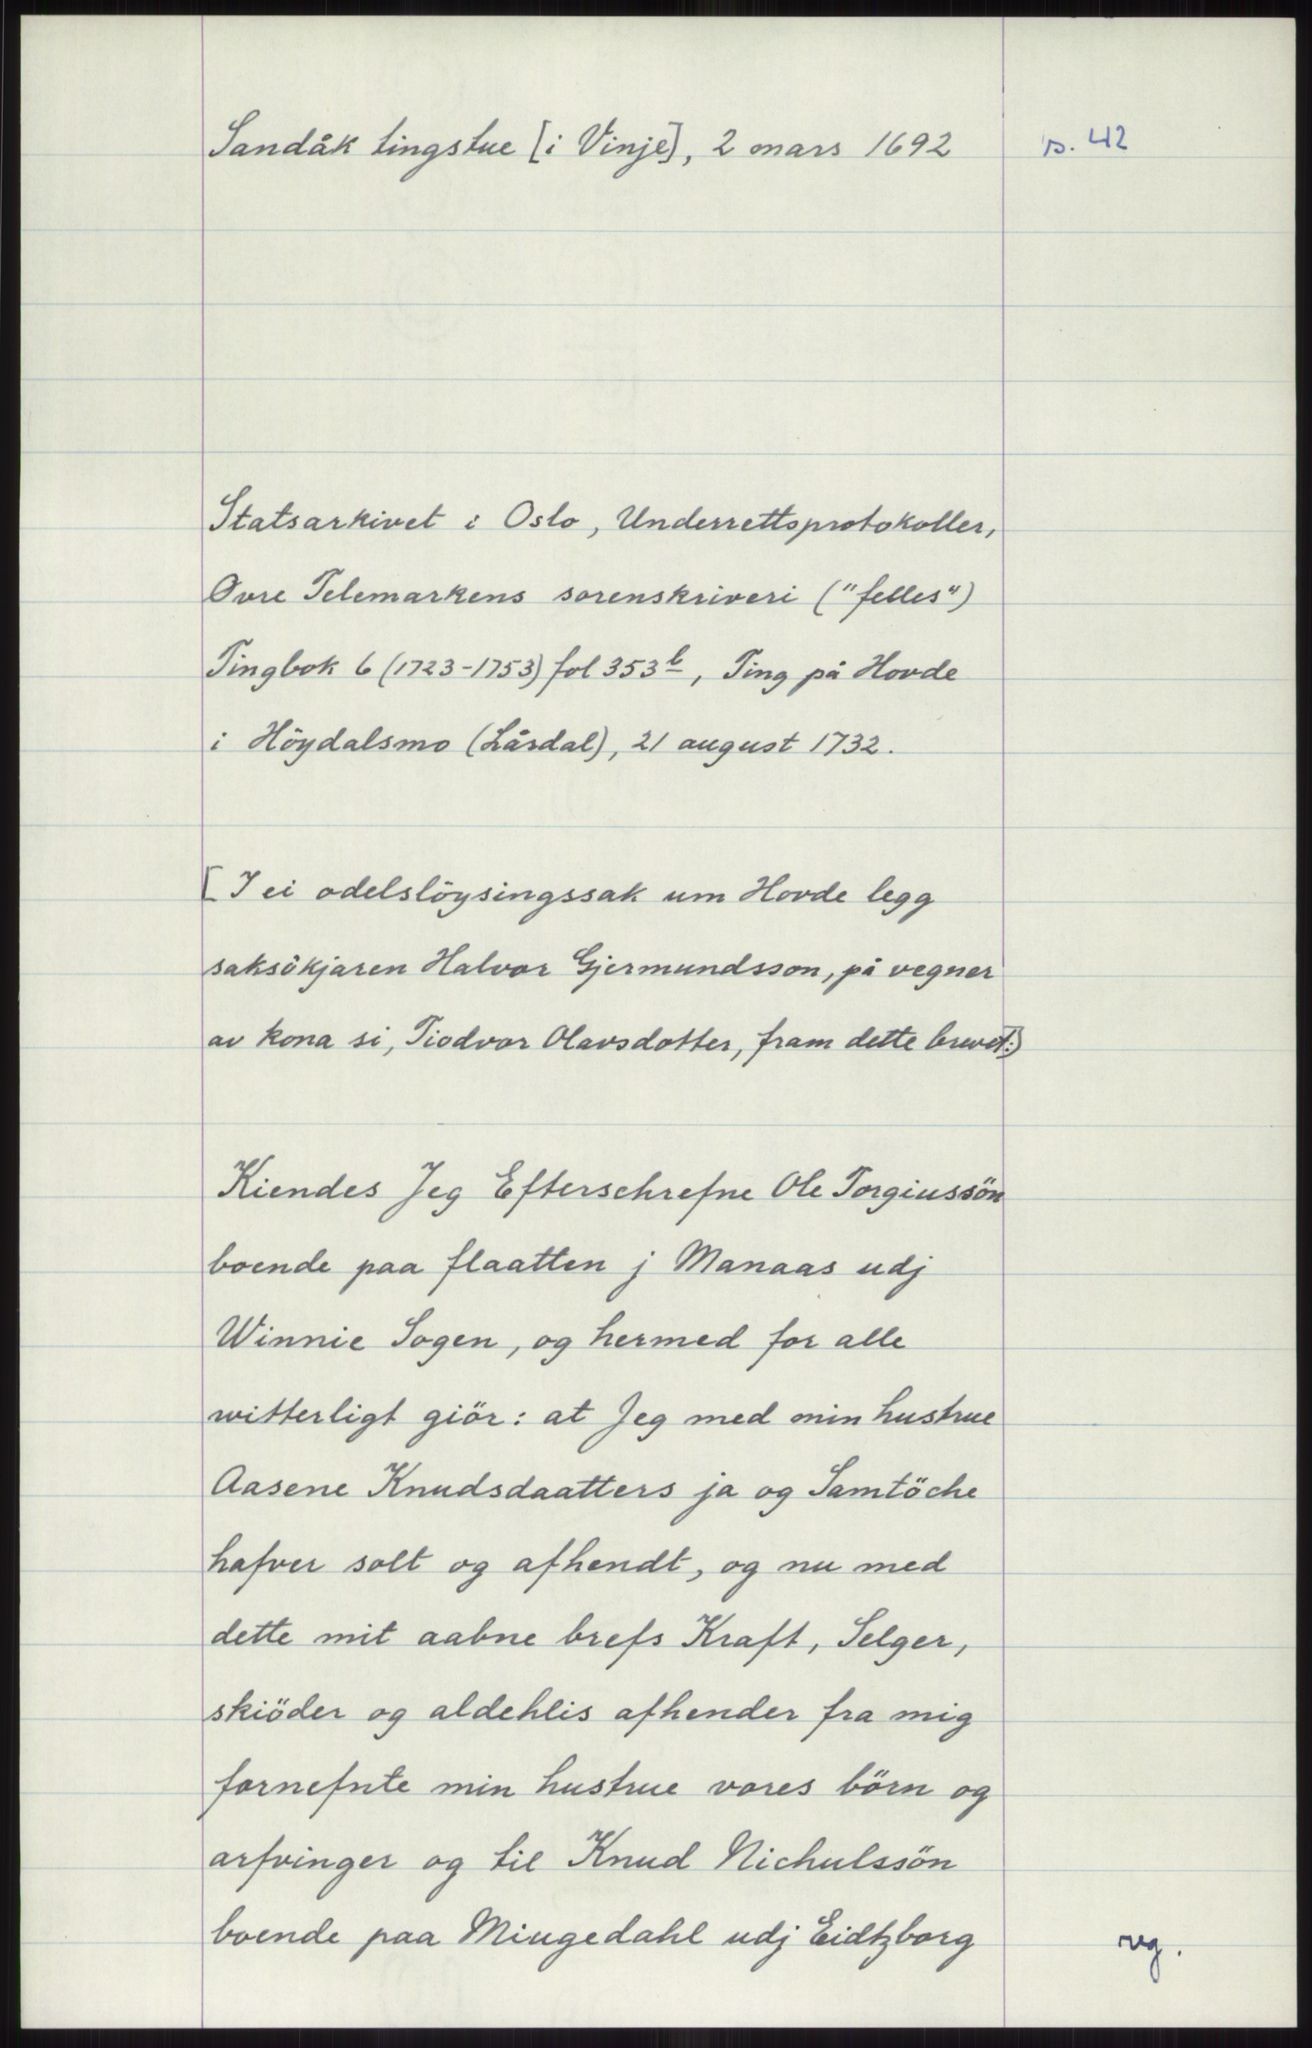 Sandåk tingstue [i Vinje], 2 mars 1692
s. 42
Statsarkivet i Oslo, Underrettsprotokoller,
Øvre Telemarkens sorenskriveri ("felles")
Tingbok 6 (1723-1753) fol 353 b, Ting på Hovde
i Höydalsmo (Lårdal), 21 august 1732.
[I ei odelslöysingssak um Hovde legg
saksökjaren Halvor Gjermundsson, på vegner
av kona si, Tiodvor Olavsdotter, fram dette brevet:]
Kiendes Jeg Efterschrefne Ole Torgiussön
boende paa flaatten j Manaas udj
Winnie Sogen, og hermed for alle
witterligt giör: at Jeg med min hustrue
Aasene Knudsdaatters ja og Samtöche
hafver solt og afhendt, og nu med
dette mit aabne brefs Kraft, Selger,
skiöder og aldehlis afhender fra mig
fornefnte min hustrue vores börn og
arfvinger og til Knud Nichulssön
boende paa Miugedahl udj Eidtzborg
rg.